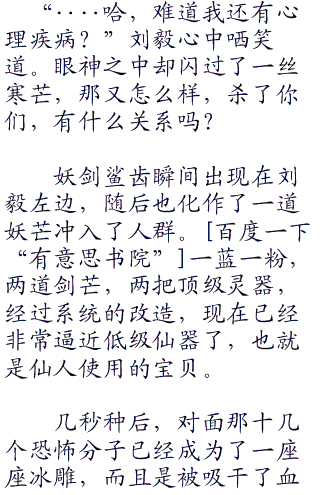 “····哈，难道我还有心
理疾病？”刘毅心中哂笑
道。眼神之中却闪过了一丝
寒芒，那又怎么样，杀了你
们，有什么关系吗？
妖剑鲨齿瞬间出现在刘
毅左边，随后也化作了一道
妖芒冲入了人群。[百度一下
“有意思书院”]一蓝一粉，
两道剑芒，两把顶级灵器，
经过系统的改造，现在已经
非常逼近低级仙器了，也就
是仙人使用的宝贝。
几秒种后，对面那十几
个恐怖分子已经成为了一座
座冰雕，而且是被吸干了血